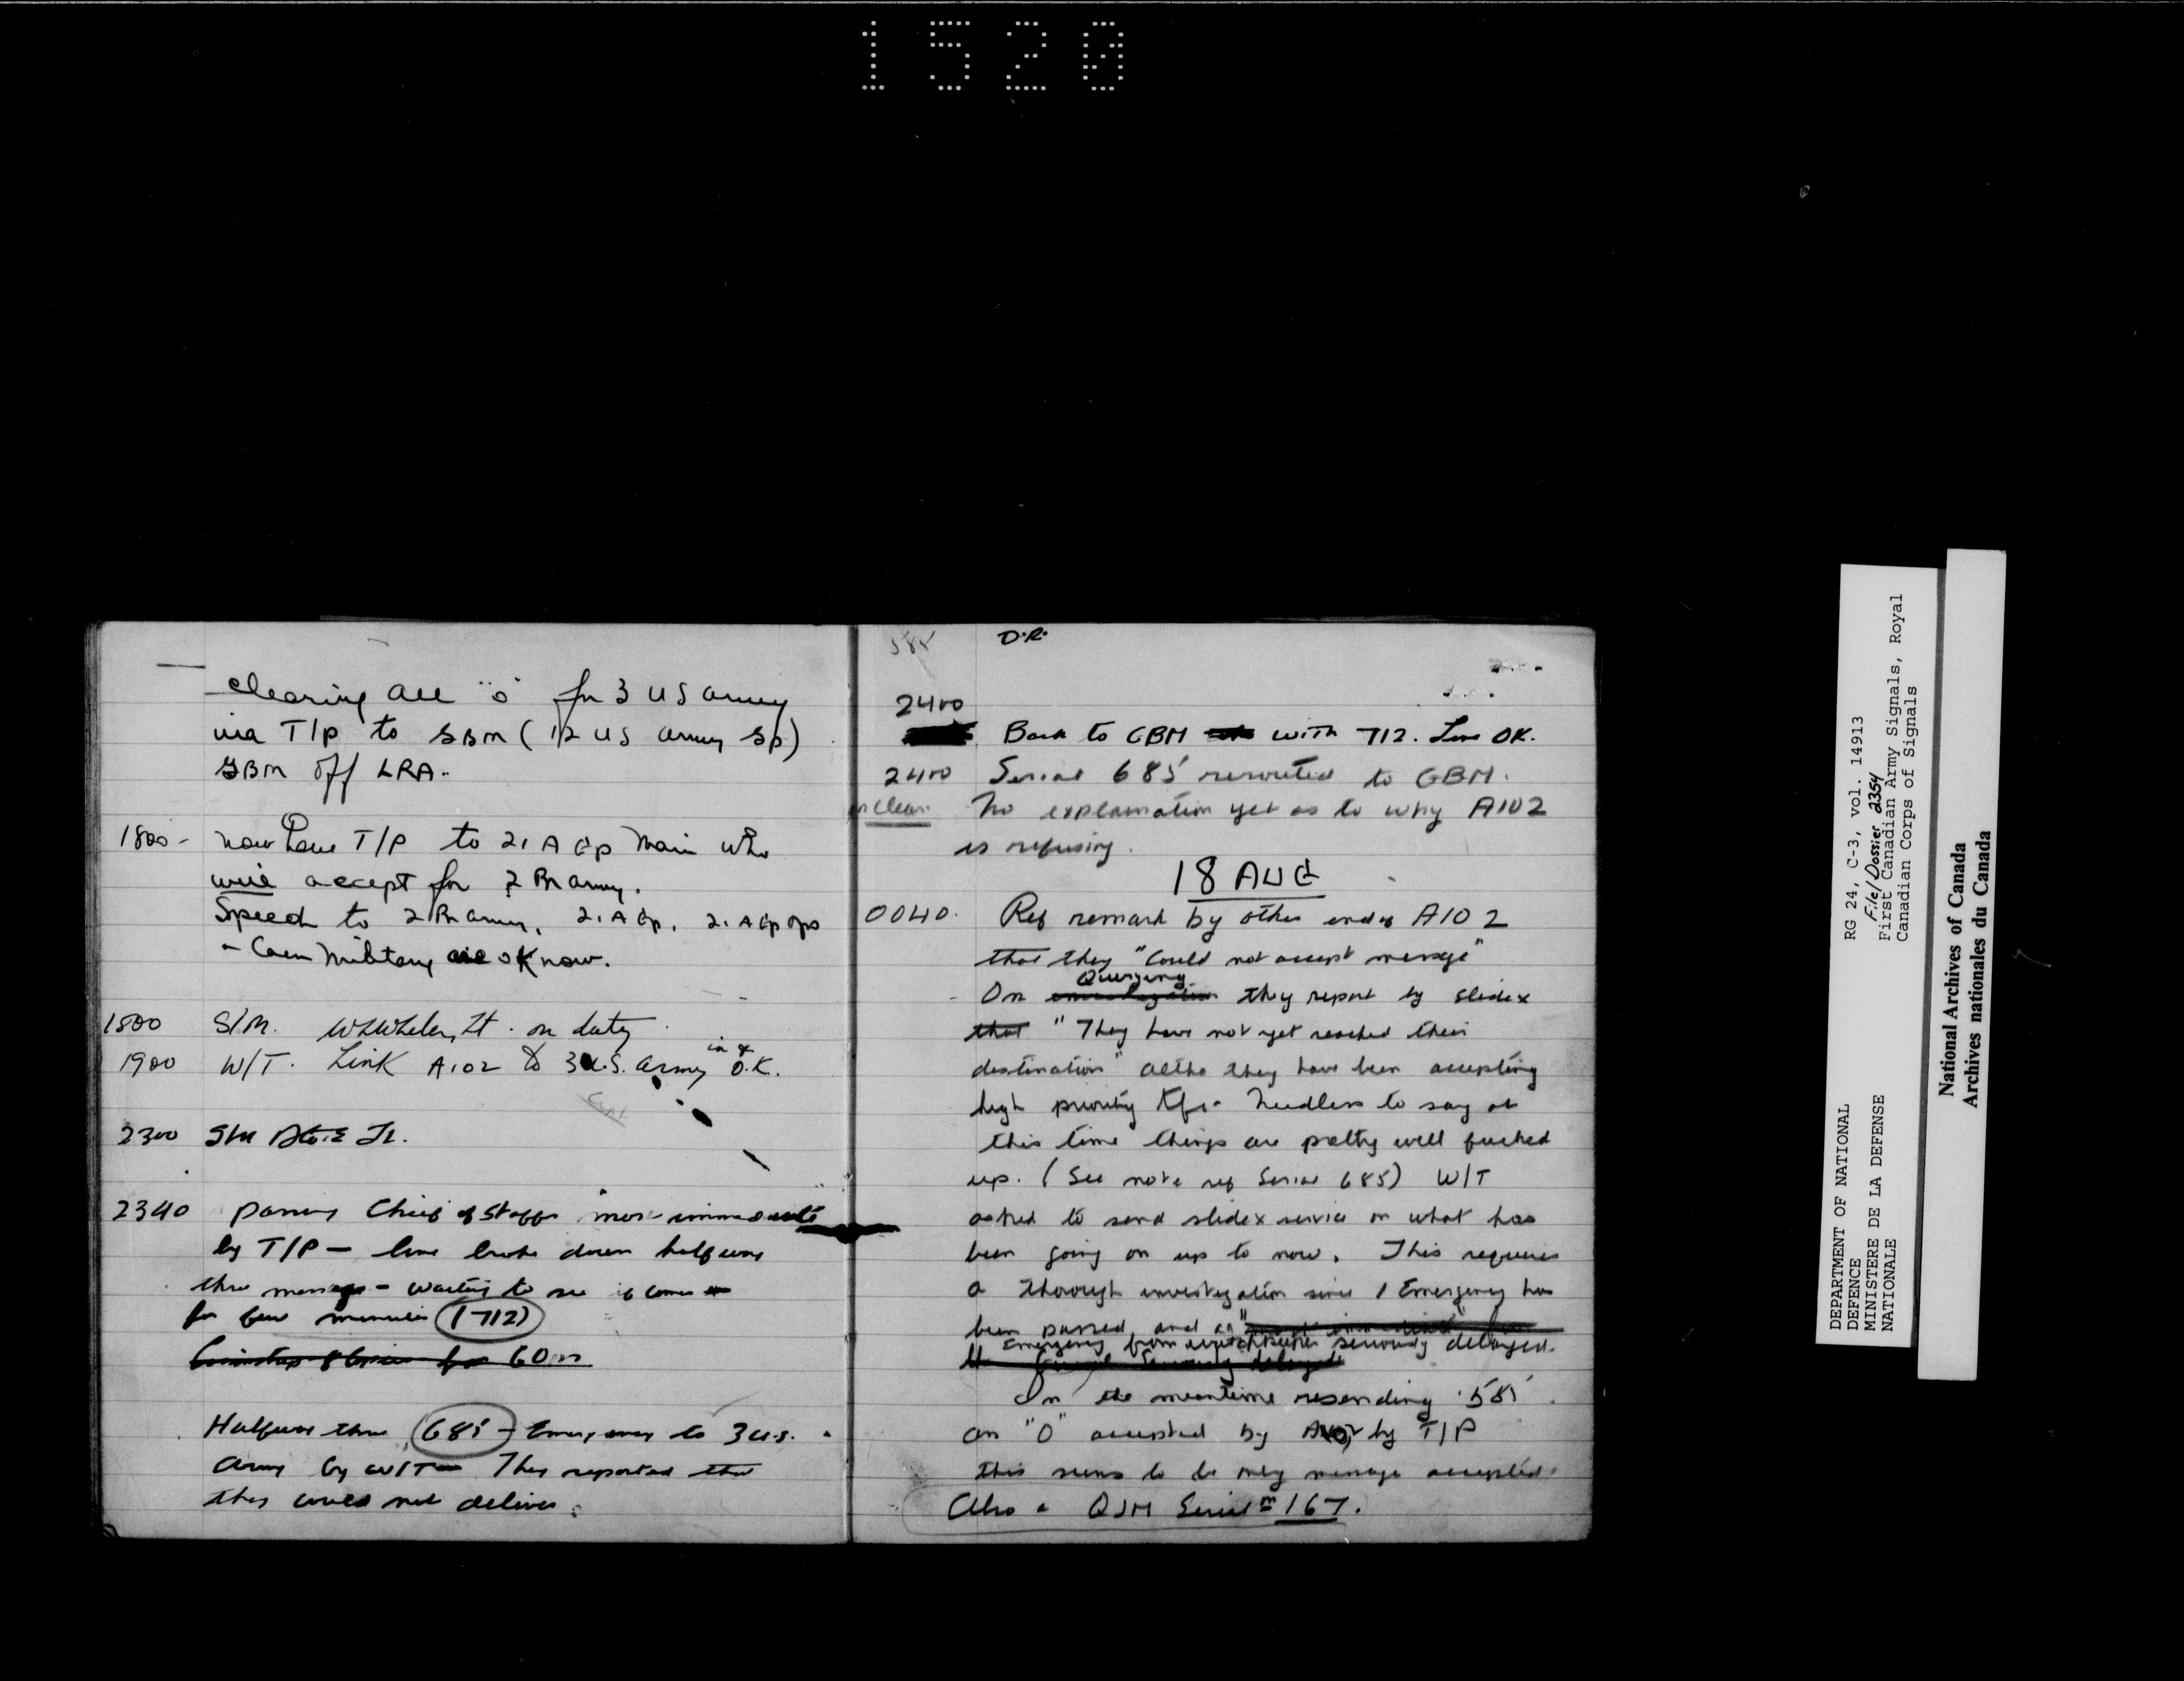 1520
clearing all "O" for 3 US army
via T/P to GBM (12 US Army Gp)
GBM off LRA.
1800 - now have T/P to 21 A Gp Main who
will accept for 2 Br army.
Speed to 2 Br army, 21 A Gp, 21 A Gp ops
- Caen Military are OK now.
1800 S/M. Lt. on duty
1900 W/T. Link A102 to 3 U.S. army in & O.K.
2300 S/M Lt.
2340 passing Chief of Staffs most immediate
by T/P - line broke down halfway
thru message - waiting to see if comes
for few minutes (712)
for 60
Halfway thru 685 - Emergency to 3 U.S.
Army by W/T - They reported that
they could not deliver.
585 D.R.
2400
Back to GBM with 712. Line OK.
2400 Serial 685 rerouted to GBM.
in clear. No explanation yet as to why A102
is refusing.
18 AUG
0040. Ref remark by other end of A102
that they "Could not accept message"
Querying
On investigation they report by slidex
that "They have not yet reached their
destination" altho they have been accepting
high priority tfc. Needless to say at
this time things are pretty well fucked
up. (See note ref Serial 685) W/T
asked to send slidex service on what has
been going on up to now. This requires
a thorough investigation since 1 Emergency has
been passed and an "most immediate"
Emergency from seriously delayed.
seriously delayed
In the meantime resending 585
an "O" accepted by A102 by T/P
this seems to be only message accepted.
Also - QJM Serial No 167.
DEPARTMENT OF NATIONAL
DEFENCE
MINISTERE DE LA DEFENSE
NATIONALE
RG 24, C-3, vol. 14913
File/Dossier 2354
First Canadian Army Signals, Royal
Canadian Corps of Signals
National Archives of Canada
Archives nationales du Canada